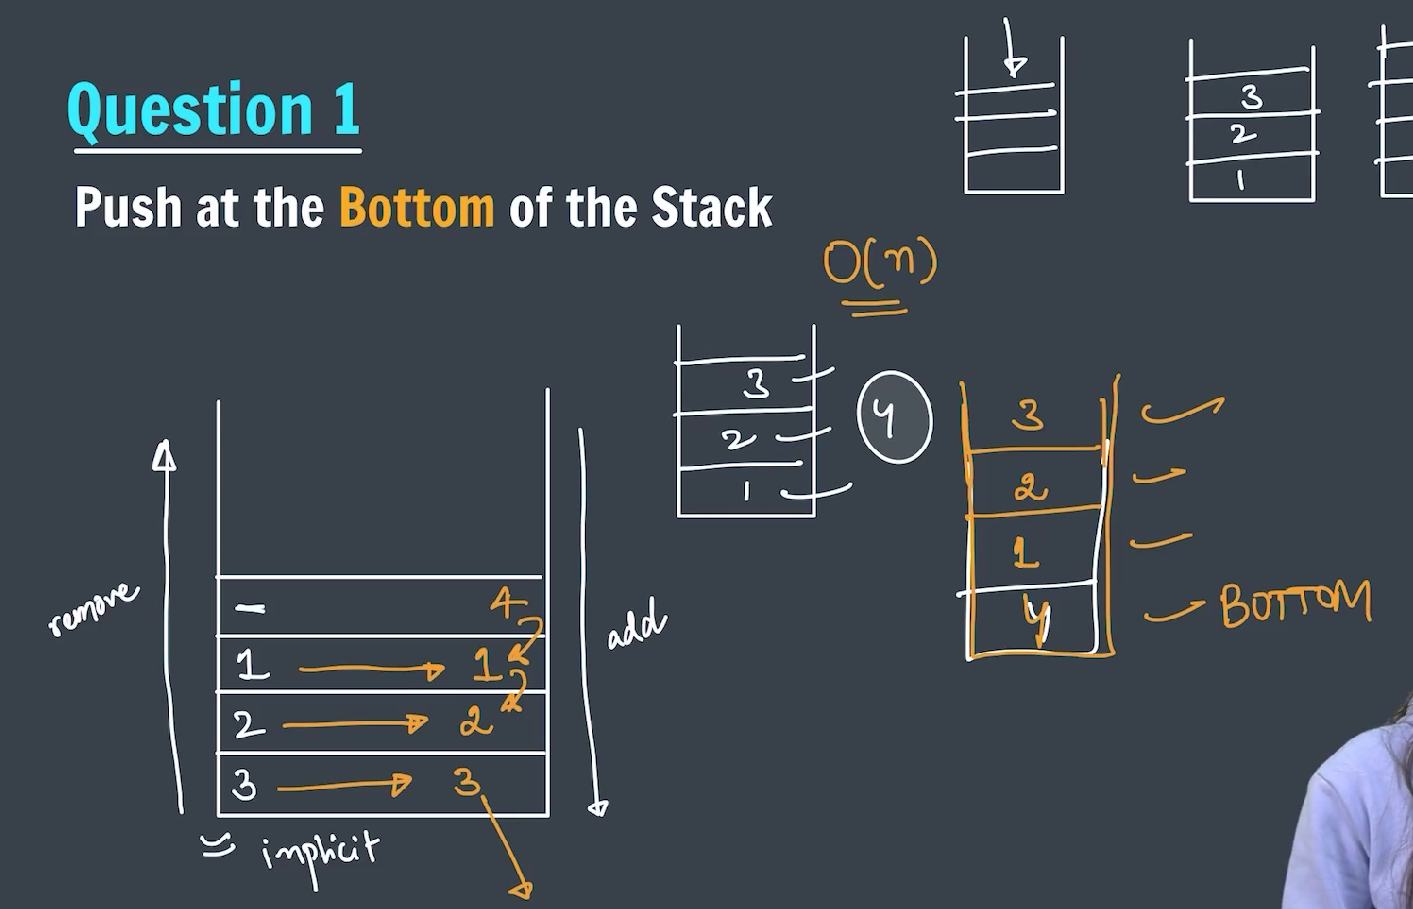 Question 1
Push at the Bottom of the Stack
3
2
1
O(n)
3
2
1
4
3
2
1
4
BOTTOM
remove
add
- 4
1 1
2 2
3 3
= implicit